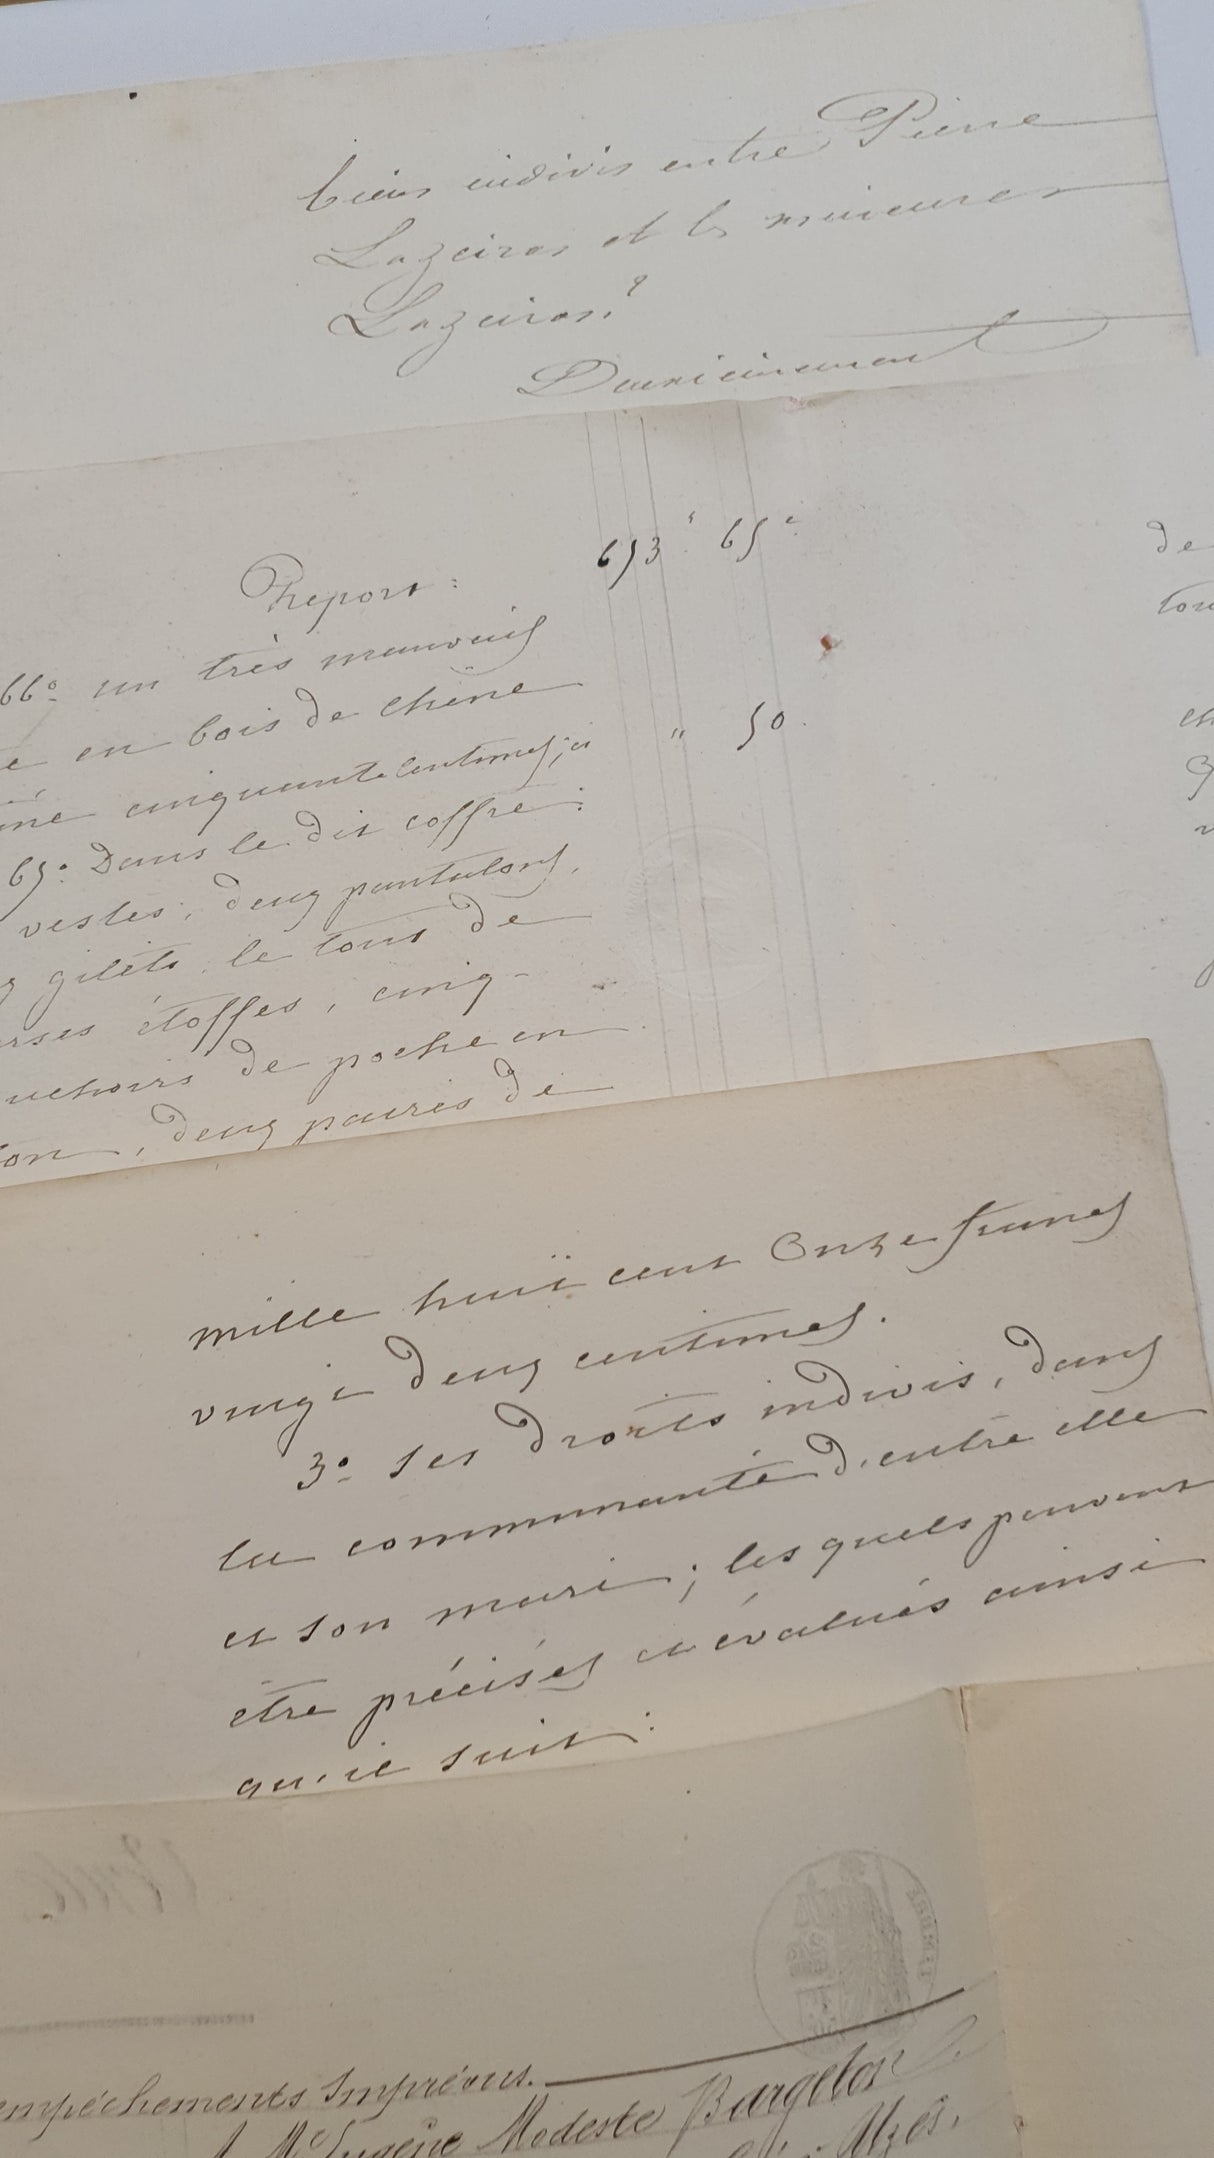 biens indivis entre Pierre
Lazeiras et les mineures
Lazeiras.
Report : 653 f 65 c
66° un très mauvais
en bois de chêne
cinquante centimes; ci " 50.
65° Dans le dit coffre :
vestes, deux pantalons,
gilets le tout de
étoffes, cinq
de poche en
, deux paires de
de
mille huit cent Onze francs
vingt deux centimes.
3° ses droits indivis, dans
la communauté d'entre elle
et son mari; les quels peuvent
être précisés et évalués ainsi
qu'il suit :
empêchements imprévus.
Me Eugène Modeste Bargeton
Uzès.